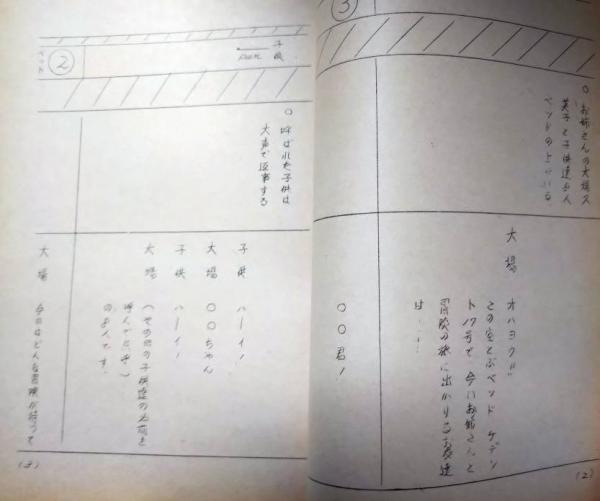 ③
○ お姉さんの大場久
美子と子供達五人
ベッドの上にいる
大場 オハヨウ!!
この空とぶベッド
号で 今日お姉さんと
冒険の旅に出かけるお友達
は…!
○○君!
(2)
②
ベッド
子供
○ 呼ばれた子供は
大声で返事する
子供 ハーイ!
大場 ○○ちゃん
子供 ハーイ!
大場 (その他の子供達の名前を
呼んでいき)
の5人です。
大場 今日はどんな冒険が待って
(3)